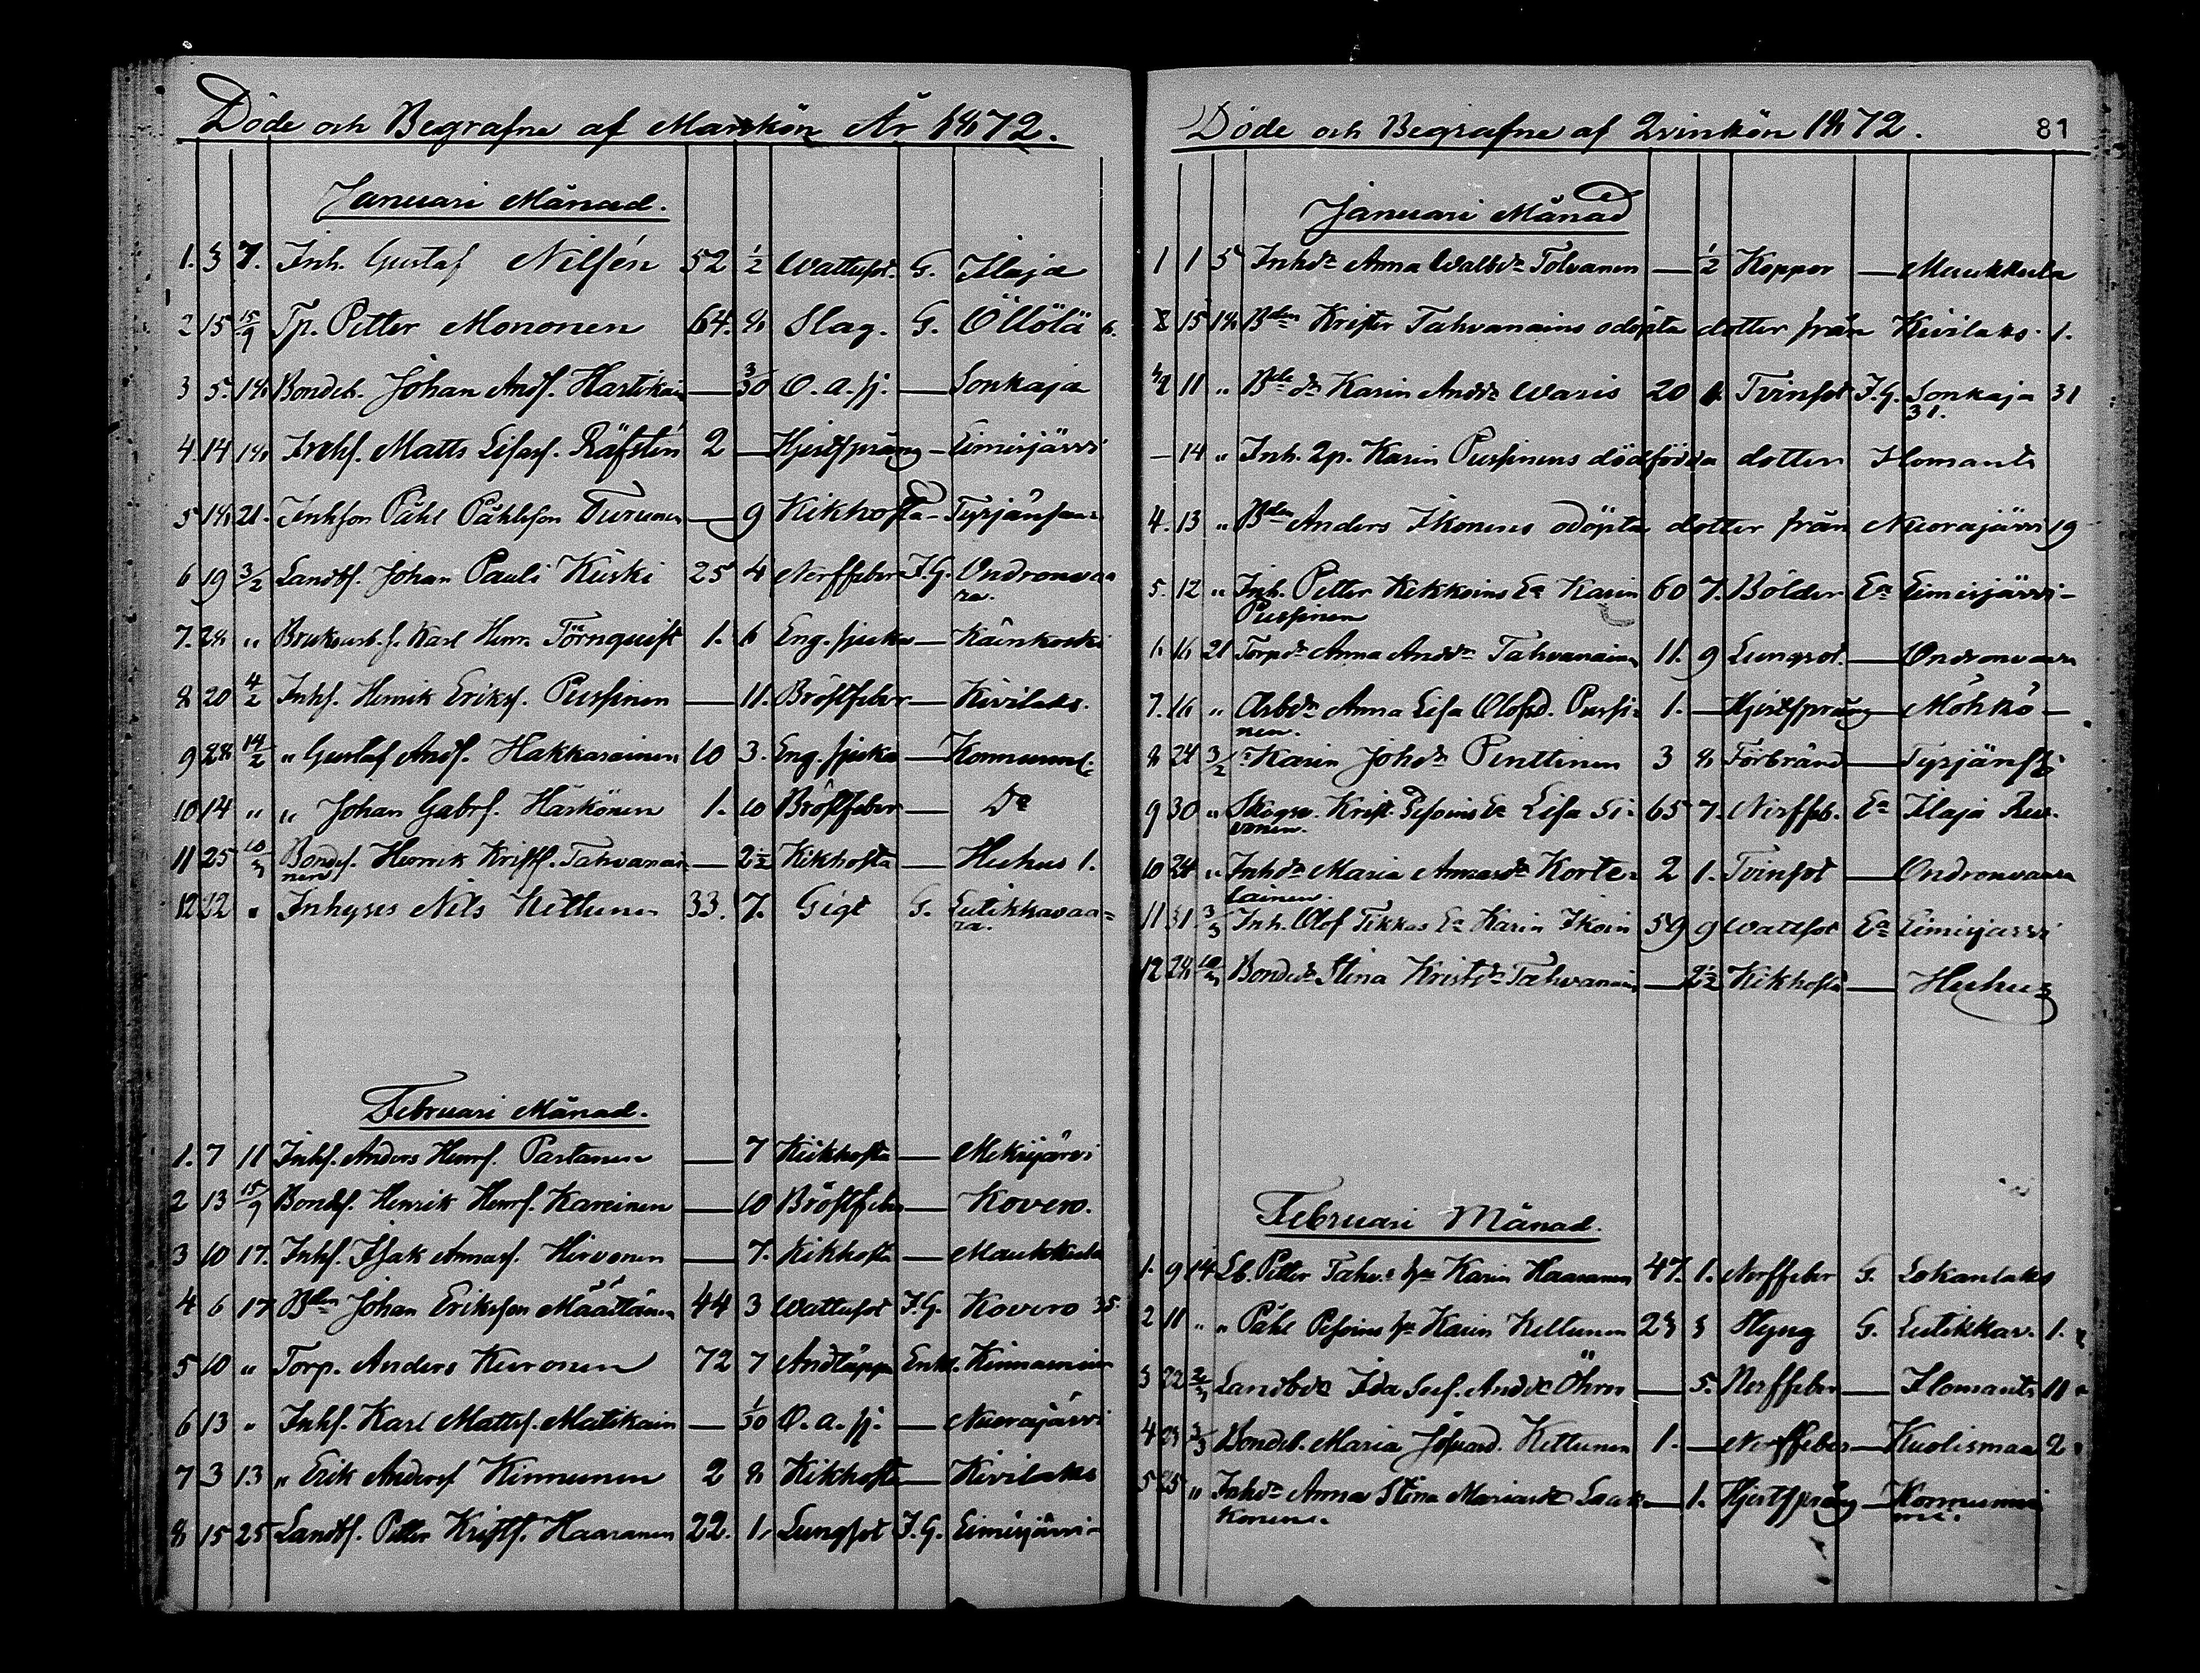 Döde och Begrafne af Mankön År 1872.
Januari Månad.
1. 3 7. Inh. Gustaf Nilsén 52 1/2 Wattusot. G. Ilaja
2 15 15/9 Tp. Petter Mononen 64. 8 Slag. G. Öllölä 6.
3 5. 18 Bondes. Johan Ands. Hartikai — 3/30 O. a. sj. — Sonkaja
4. 14 18 Matts Lisas. Räfstén 2 — Hjertsprång — Eimisjärvi
5 18 21. Inhson Påhl Påhlsson Turunen — 9 Kikhosta —
6 19 3/2 Landbs. Johan Pauli Kuiski 25 4 Nerffeber I. G. Ondronvaa
ra.
7. 28 " Karl Henr. Törnquist 1. 6 Eng. sjuka — Käinkoski
8 20 4/2 Inhs. Henrik Eriks. Pussinen — 11. Bröstfeber — Kivilaks.
9 28 14/2 " Gustaf Ands. Hakkarainen 10 3. Eng. sjuka —
10 14 " " Johan Gabrs. Härkönen 1. 10 Bröstfeber — Do
11 25 10/3 Bondes. Henrik Krists. Tahvanai — 2 1/2 Kikhosta — Huhus 1.
nen
12 22 " Inhyses Nils Kettunen 33. 7. Gigt G. Lutikkavaa=
ra.
Februari Månad.
1. 7 11 Inhs. Anders Henrs. Partanen — 7 Kikhosta — Mekrijärvi
2 13 15/9 Bondes. Henrik Henrs. Kareinen — 10 Bröstfeber — Kovero.
3 10 17. Inhs. Isak Annas. Hirvonen — 7. Kikhosta — Maukkula
4 6 17 Bden Johan Eriksson Määttänen 44 3 Wattusot I. G. Kovero 35.
5 10 " Torp. Anders Kuronen 72 7 Andtäppa Enkl.
6 13 " Inhs. Karl Matts. Matikain — 1/30 O. a. sj. — Nuorajärvi
7 3 13. " Erik Anders Kinnunen 2 8 Kikhosta — Kivilaks
8 15 25 Landbs. Petter Krists. Haaranen 22. 1. Lungsot I. G. Eimisjärvi
Döde och Begrafne af Qvinkön 1872. 81
Januari Månad
1 1 5 Inhdr Anna Walbdr Tolvanen — 1/2 Koppor — Maukkula
2 15 18 Bden Krister Tahvanains odöpta dotter från Kivilaks 1.
11 " Karin Anddr Waris 20 1. Tvinsot I. G. Sonkaja 31
31.
— 14 " Inh. Qp. Karin Pussinens dödfödda dotter Ilomants
4. 13 " Bden Anders Ikonens odöpta dotter från Nuorajärvi 19
5. 12 " Inh. Petter Kekkoins Ea Karin 60 7. Bölder Ea Eimisjärvi
Pussinen
6. 16 21 Torpdr Anna Anddr Tahvanainen 11. 9 Lungsot. — Ondronvaara
7. 16 " Arbdr Anna Lisa Olofsd. Pussi= 1. — Hjertsprång — Möhkö —
nen.
8 24 3/2 Karin Johdr Penttinen 3 8 Förbränd —
9 30 " Krist. Ea Lisa Si= 65 7. Nerffeb. Ea Ilaja
vonen.
10 24 " Inhdr Maria Annasdr Korte= 2 1. Tvinsot — Ondronvaara
lainen.
11 31 3/3 Inh. Olof Tikkas Ea Karin Ikoin 59 9 Wattsot Ea Eimisjärvi
12 28 10/3 Bondedr Stina Kristdr Tahvanain — 2 1/2 Kikhosta — Huhus
Februari Månad.
1. 9 14 Lb. Petter Tahv:s hu Karin Haaranen 47. 1. Nerffeber G. Lokanlaks
2 11 " " Påhl Pesoins hu Karin Kettunen 23 3 Styng G. Lutikkav. 1.
3 22 2/3 Landbdr Ida Sof. Anddr Öhrn — 5. Nerffeber — Ilomants 11
4 23 3/3 Bonded. Maria Kettunen 1. — Nerffeber — Kuolismaa 2
5 25 " Inhdr Anna Stina Mariasdr Laak= — 1. Hjertsprång —
konen.